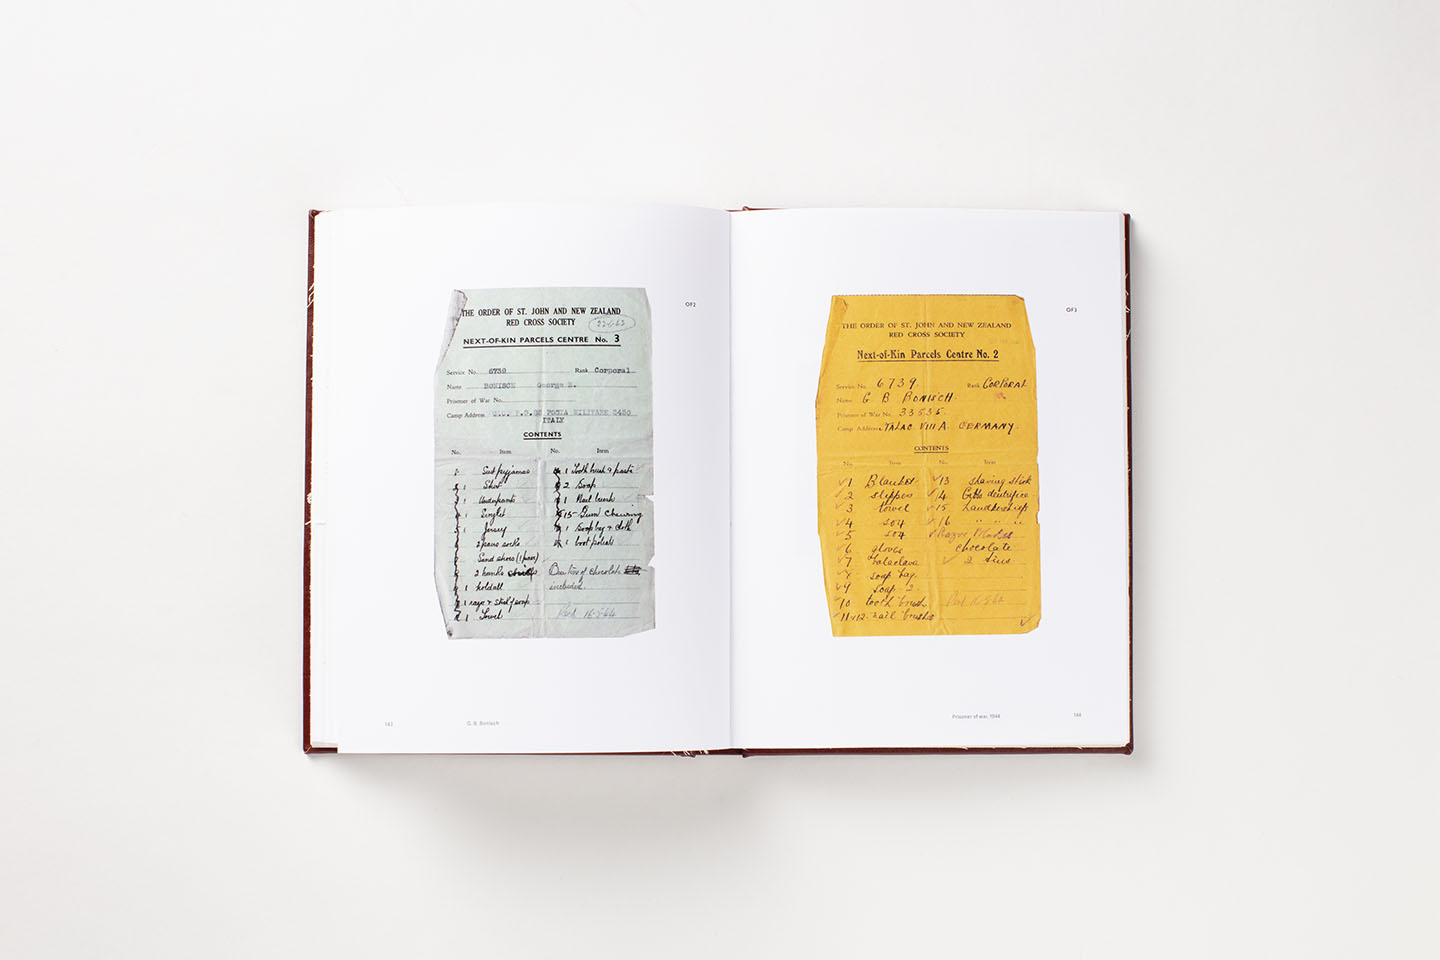 OF2
THE ORDER OF ST. JOHN AND NEW ZEALAND
RED CROSS SOCIETY
NEXT-OF-KIN PARCELS CENTRE No. 3
Service No. 6739 Rank Corporal
Name BONISCH George B.
Prisoner of War No.
Camp Address P.G. POSTA MILITARE 3450
ITALY
CONTENTS
No. Item No. Item
1 Suit pyjamas
1 Shirt
1 Underpants
1 Singlet
1 Jersey
2 pairs socks
Sand shoes (1 pair)
2 hanks
1 holdall
1 razor & stick of soap
1 Towel
1 Tooth brush & paste
2 Soap
1 Nail brush
15 Gum Chewing
1 Soap bag & cloth
1 boot polish
of chocolate
included.
Recd 16-5-44
143
G. B. Bonisch
OF3
THE ORDER OF ST. JOHN AND NEW ZEALAND
RED CROSS SOCIETY
Next-of-Kin Parcels Centre No. 2
Service No. 6739. Rank CORPORAL
Name G B BONISCH.
Prisoner of War No. 33535.
Camp Address STALAG VIII A. GERMANY.
CONTENTS
No. Item No. Item
1 Blanket
2 slippers
3 towel
4 sox
5 sox
6 gloves
7 balaclava
8 soap bag.
9 soap 2
10 tooth brush
11 12. nail brushes
13 shaving stick
14 Gibbs dentifrice
15 Handkerchiefs
16 " " "
Razor Blades
chocolate
2 tins
Prisoner of war, 1944
144